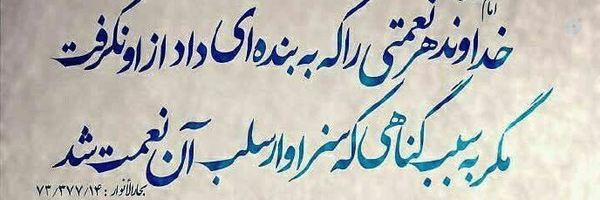 امام
خداوند هر نعمتی را که به بنده‌ای داد از او نگرفت
مگر به سبب گناهی که سزاوار سلب آن نعمت شد
بحارالأنوار : ۷۳/۳۷۷/۱۴